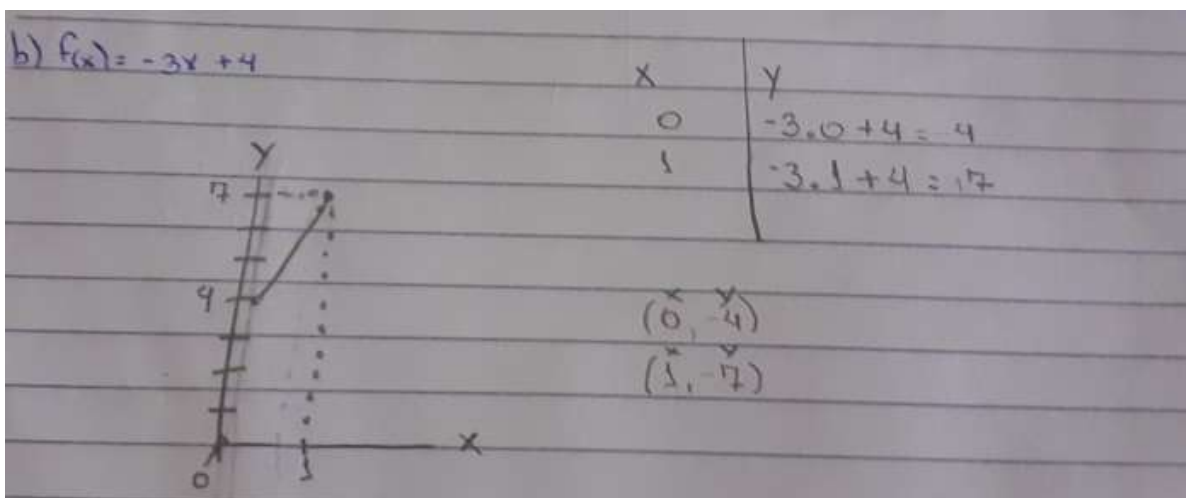 b) f(x) = -3x + 4
x | y
0 | -3.0+4 = 4
1 | -3.1+4 = 7
y
7
4
0
1
x
x y
(0, -4)
x y
(1, -7)